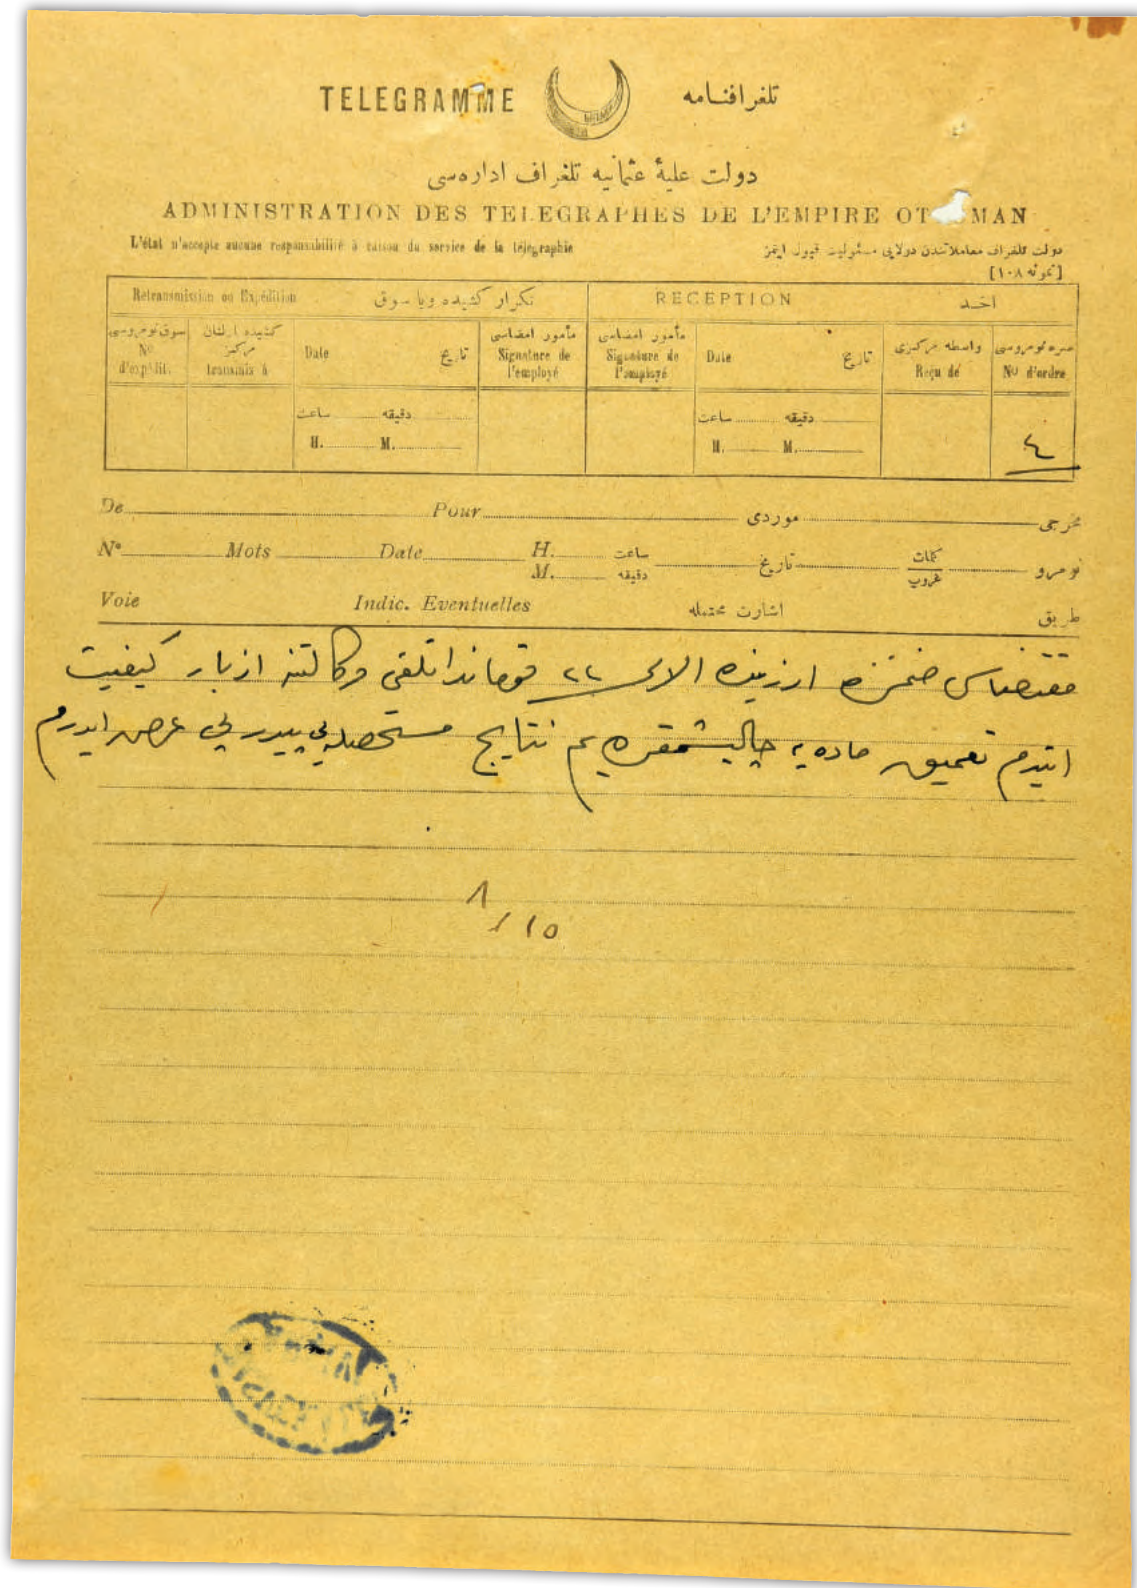 TELEGRAMME تلغرافنامه
دولت عليهٔ عثمانيه تلغراف اداره‌سى
ADMINISTRATION DES TELEGRAPHES DE L'EMPIRE OT MAN
L'état n'accepte aucune responsabilité à raison du service de la télégraphie
دولت تلغراف معاملاتندن دولايى مسئوليت قبول ايتمز
[نمونه ١٠٨]
Retransmission ou Expédition تكرار كشيده ويا سوق RECEPTION اخذ
سوق نومروسى
No d'expédit.
كشيده اولنان مركز
transmis à
Date تاريخ
مأمور امضاسى
Signature de l'employé
مأمور امضاسى
Signature de l'employé
Date تاريخ
واسطه مركزى
Reçu de
صره نومروسى
No d'ordre
ساعت دقيقه
H. M.
ساعت دقيقه
H. M.
٤
De Pour موردى مخرجى
No Mots Date H. ساعت تاريخ كلمات نومرو
M. دقيقه غروپ
Voie Indic. Eventuelles اشارت محتمله طريق
مقتضاسى ضمننده الاى ٢٢ قوماندانلغى وكالتنه ازبار كيفيت
ايتدم تعميق ماده يه چاليشمقده يم نتايج مستحصله يى پيدرپى عرض ايدرم
١
/ ١٥